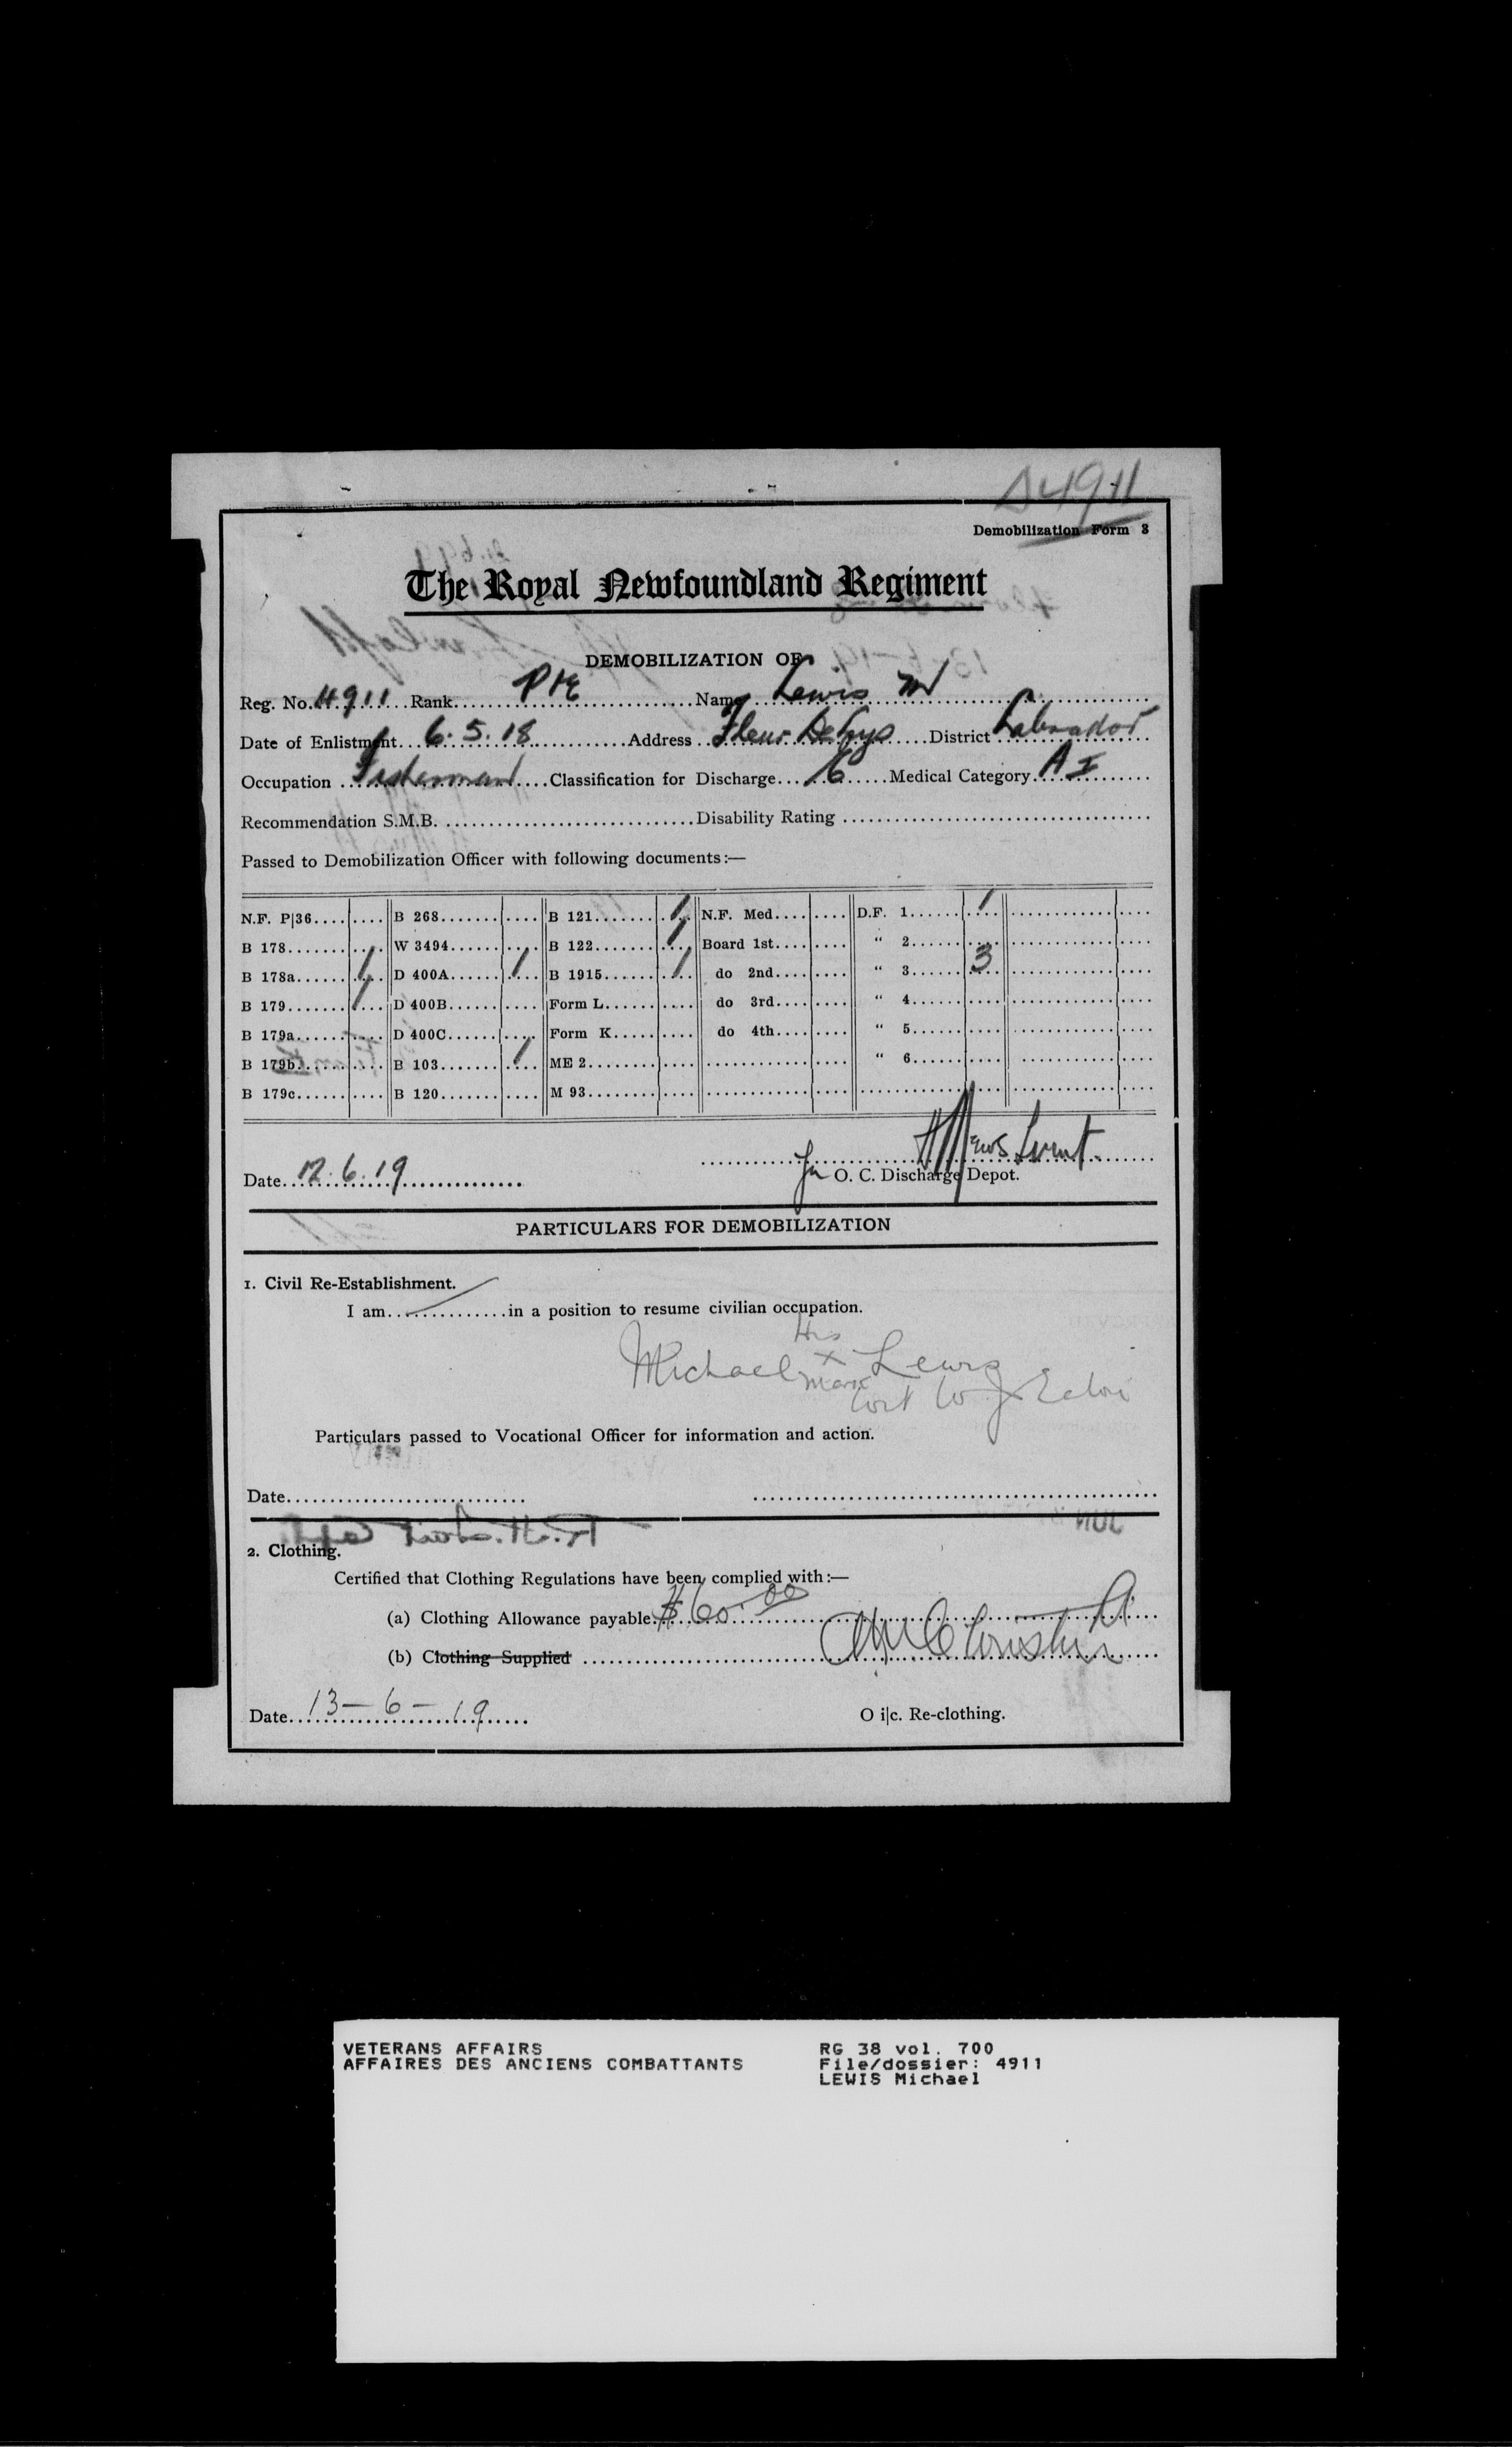 D4911
Demobilization Form 3
The Royal Newfoundland Regiment
DEMOBILIZATION OF
Reg. No. 4911 Rank Pte Name Lewis M
Date of Enlistment 6.5.18 Address Fleur De Lys District Labrador
Occupation Fisherman Classification for Discharge 16 Medical Category A I
Recommendation S.M.B. Disability Rating
Passed to Demobilization Officer with following documents:—
N.F. P|36 B 268 B 121 1 N.F. Med D.F. 1 1
B 178 W 3494 B 122 1 Board 1st " 2
B 178a 1 D 400A 1 B 1915 1 do 2nd " 3 3
B 179 1 D 400B Form L do 3rd " 4
B 179a D 400C Form K do 4th " 5
B 179b B 103 1 ME 2 " 6
B 179c B 120 M 93
Date 12.6.19
for O. C. Discharge Depot.
PARTICULARS FOR DEMOBILIZATION
1. Civil Re-Establishment.
I am in a position to resume civilian occupation.
His
Michael x Lewis
mark
Wit W J
Particulars passed to Vocational Officer for information and action.
Date
2. Clothing.
Certified that Clothing Regulations have been complied with:—
(a) Clothing Allowance payable $60.00
(b) Clothing Supplied
Date 13-6-19
O i|c. Re-clothing.
VETERANS AFFAIRS RG 38 vol. 700
AFFAIRES DES ANCIENS COMBATTANTS File/dossier: 4911
LEWIS Michael